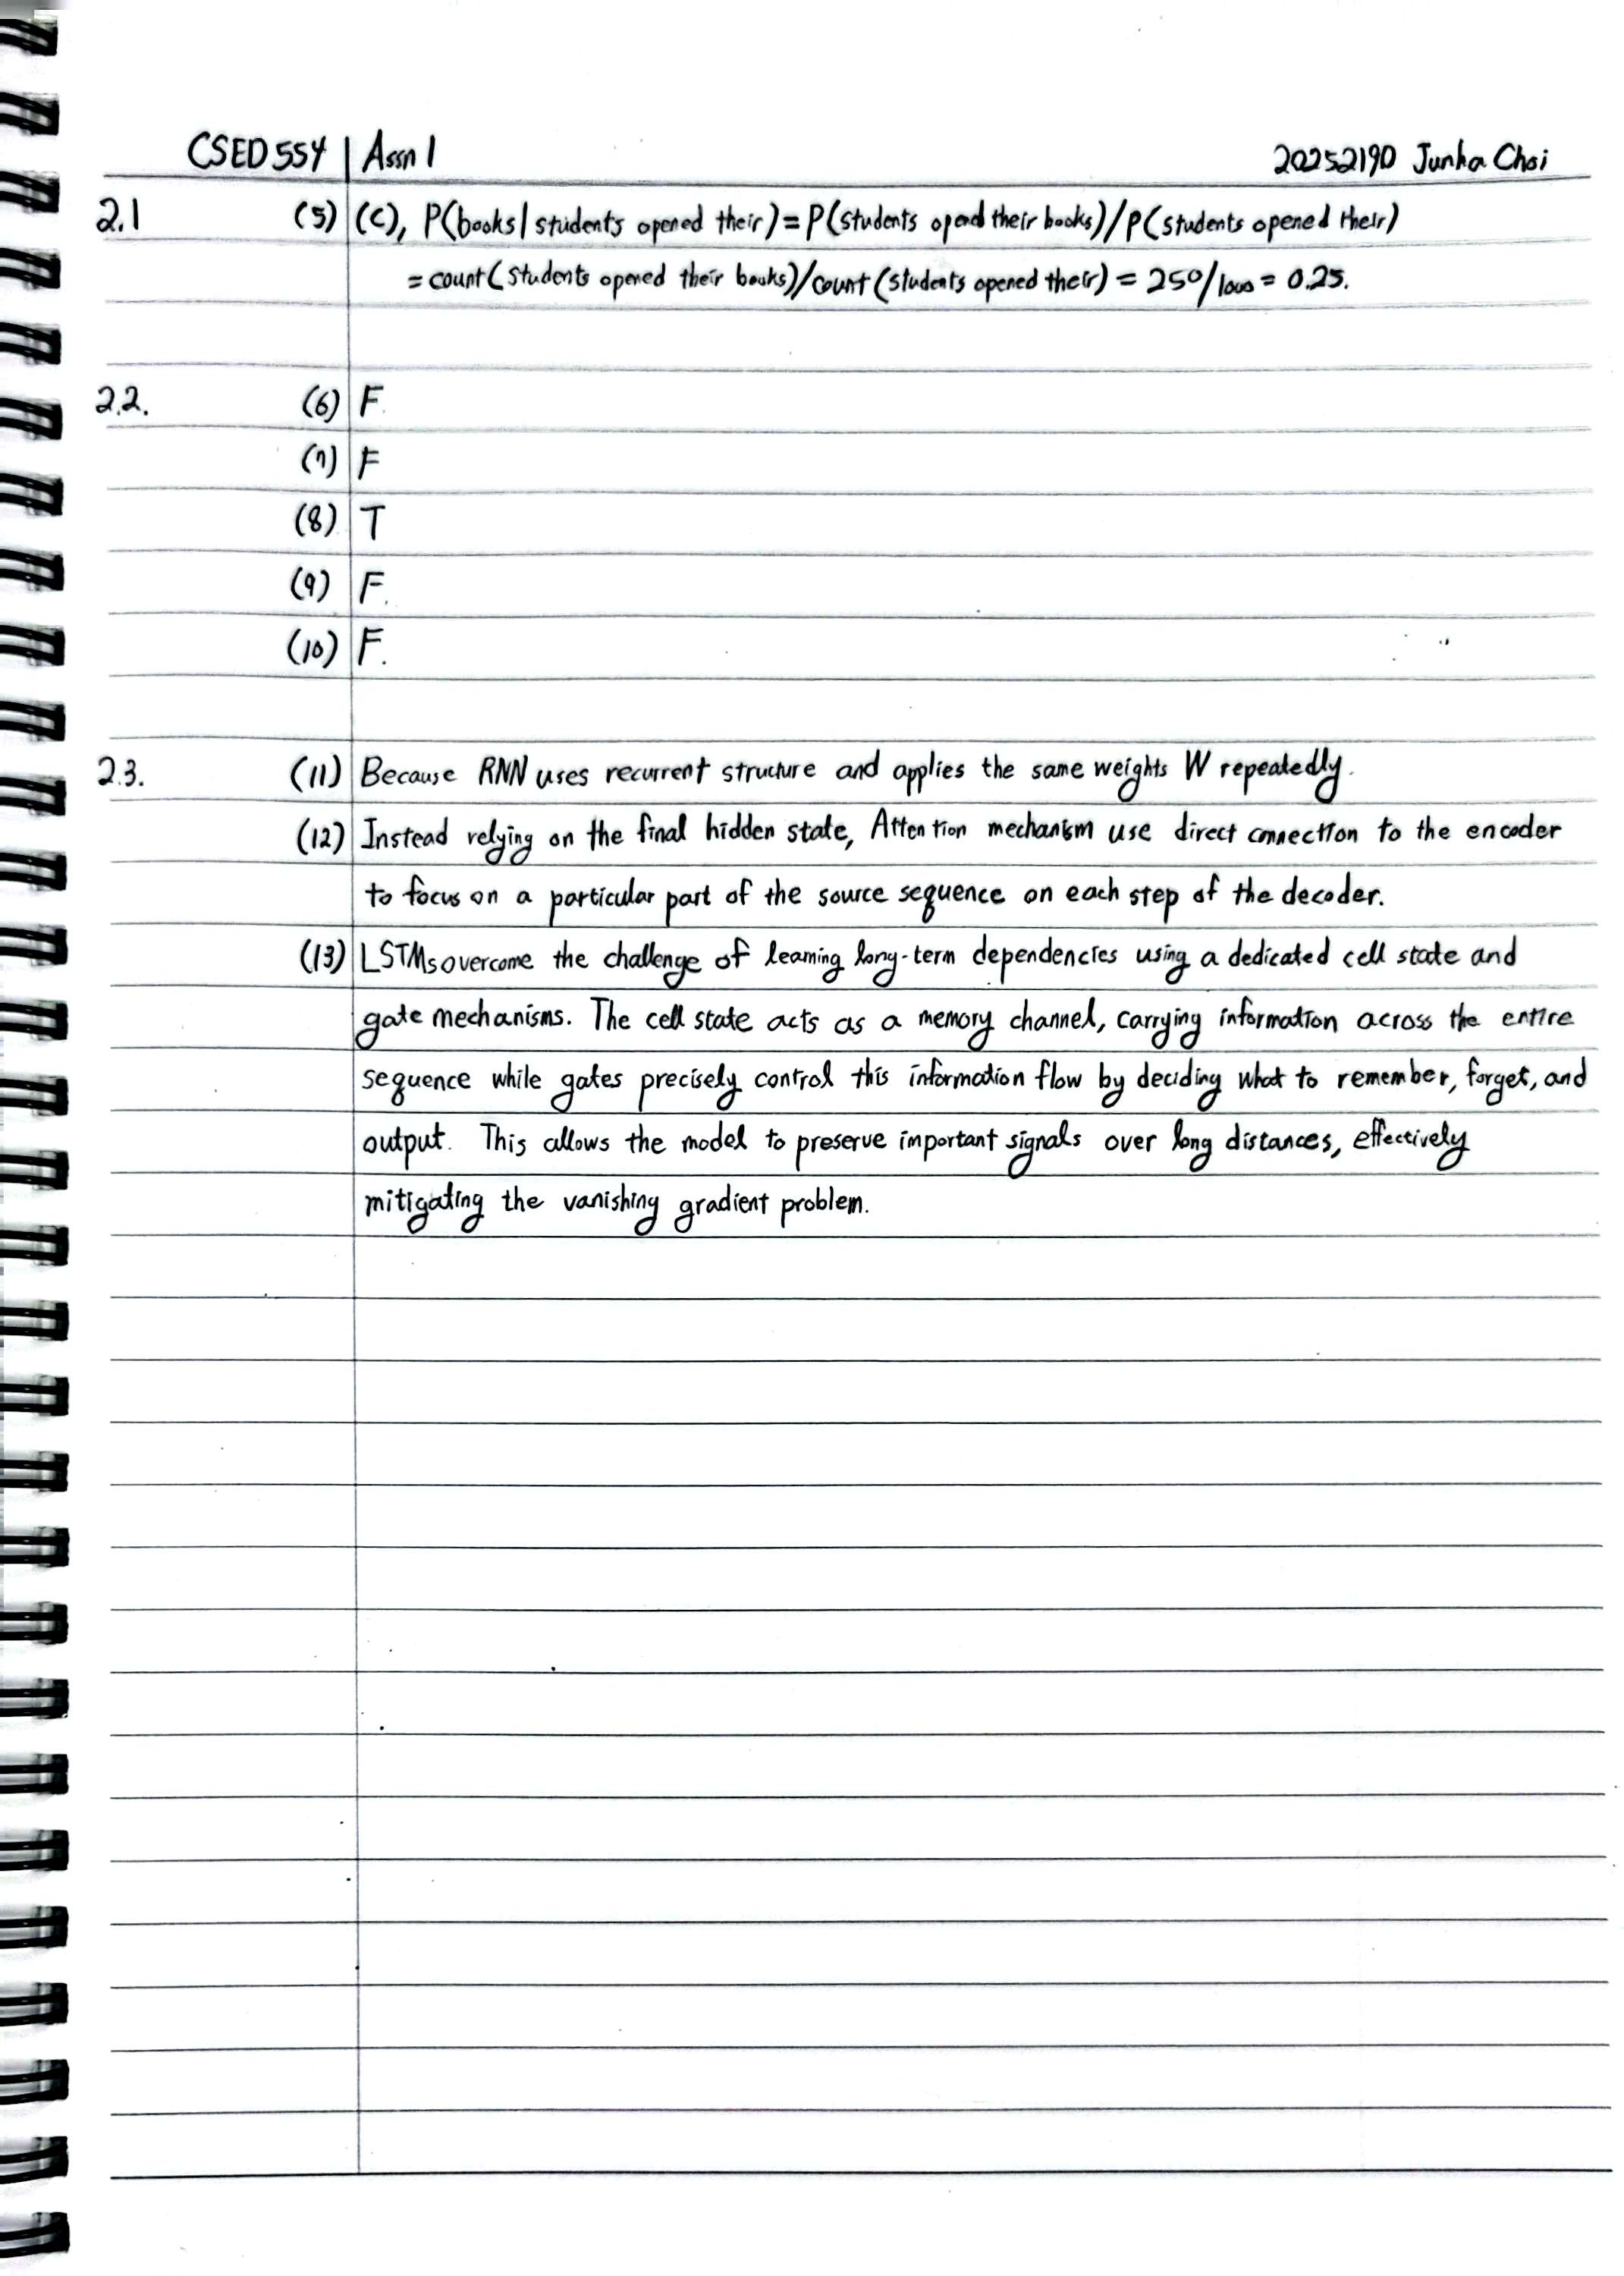 CSED554 Assn 1 20252190 Junha Choi
2.1 (5) (C), P(books|students opened their) = P(students opend their books)/P(students opened their)
= count(students opened their books)/count(students opened their) = 250/1000 = 0.25.
2.2. (6) F.
(7) F
(8) T
(9) F.
(10) F.
2.3. (11) Because RNN uses recurrent structure and applies the same weights W repeatedly.
(12) Instead relying on the final hidden state, Attention mechanism use direct connection to the encoder
to focus on a particular part of the source sequence on each step of the decoder.
(13) LSTMs overcome the challenge of learning long-term dependencies using a dedicated cell state and
gate mechanisms. The cell state acts as a memory channel, carrying information across the entire
sequence while gates precisely control this information flow by deciding what to remember, forget, and
output. This allows the model to preserve important signals over long distances, effectively
mitigating the vanishing gradient problem.